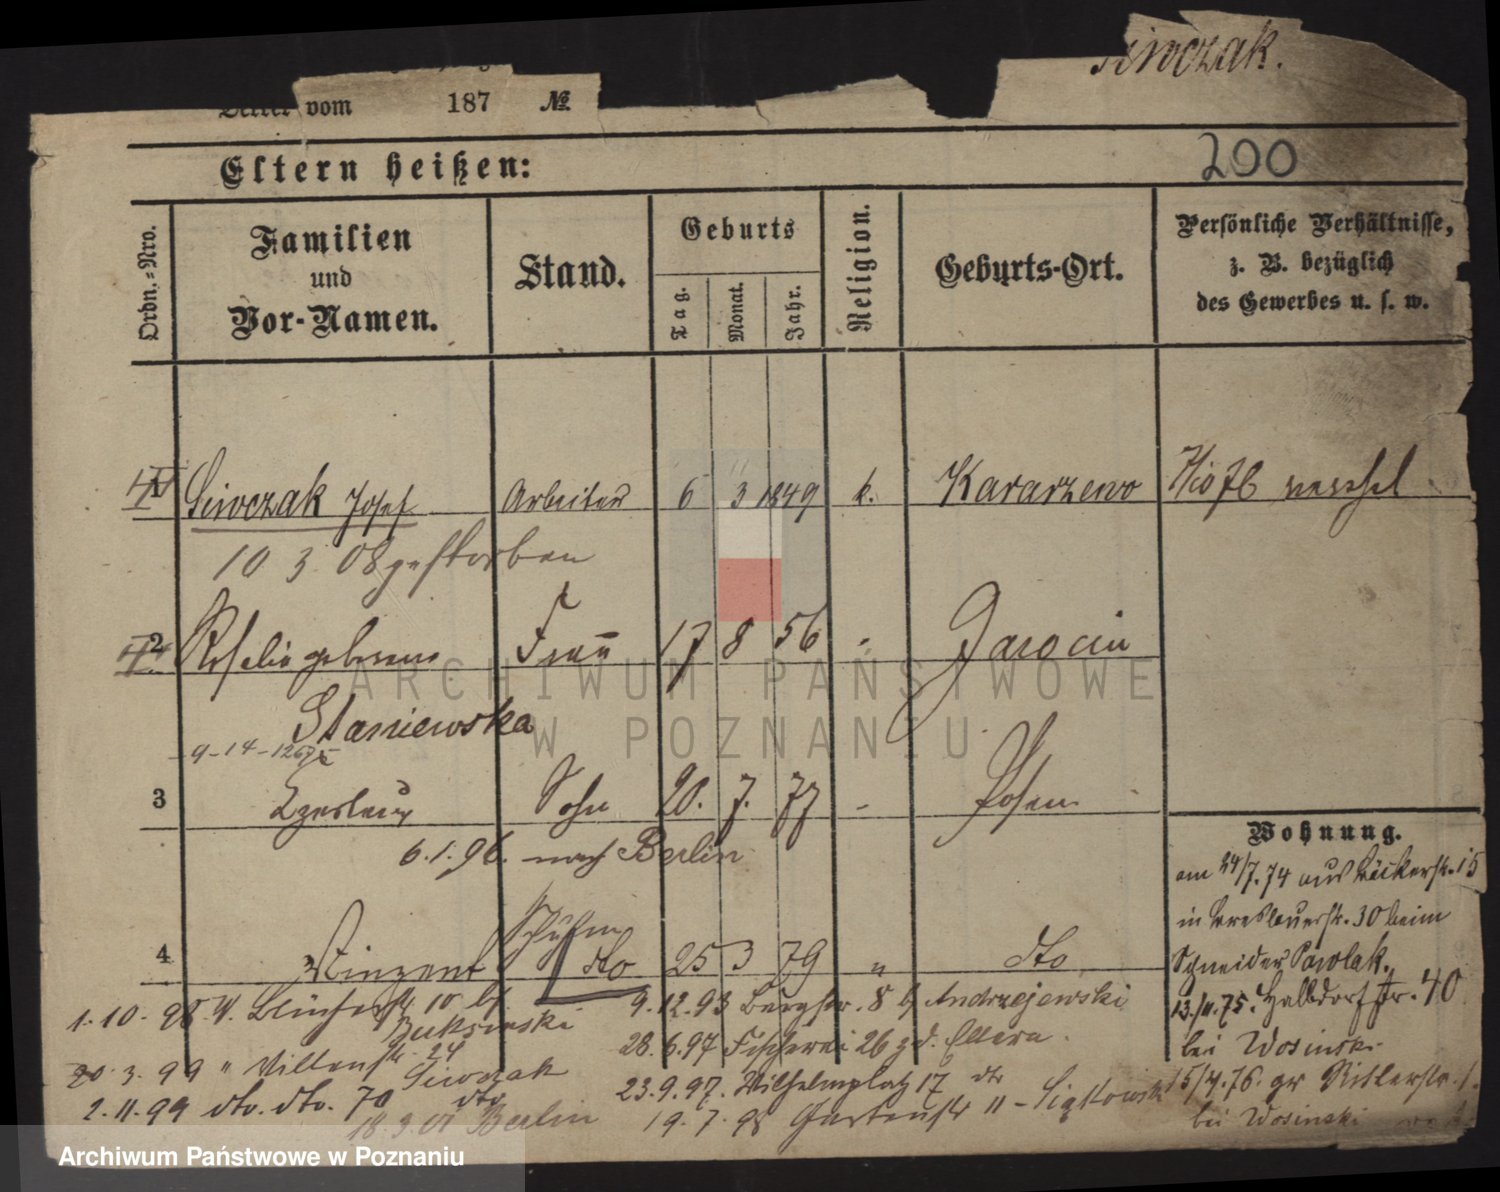 Siwczak.
vom 187 №
Eltern heißen:
200
Ordn.=Nro.
Familien
und
Vor-Namen.
Stand.
Geburts
Tag.
Monat.
Jahr.
Religion.
Geburts-Ort.
Persönliche Verhältnisse,
z. B. bezüglich
des Gewerbes u. s. w.
1 Siwczak Josef Arbeiter 6 3 1849 k.
10 3 08 gestorben
2 Rosalie geborene Frau 17 8 56 Jarocin
Staniewska
9-14-126
3 Czeslaus Sohn 20. 7. 77 Posen
6.1.96. nach Berlin
Schuhm
4 Vinzent dto 25 3 79 " dto
Wohnung.
am 24/7.74 aus Bäckerstr. 15
in Breslauerstr. 30 beim
Schneider Pawlak.
13./11.75. Halbdorfstr. 40
bei Wosinski
15/4.76. gr Ritterstr. 1.
bei Wosinski
1.10.98
Buksinski
20.3.99 "
24
Siwczak
2.11.99 dto. dto. 70 dto
18.3.01 Berlin
9.12.93 Burgstr. 8 b Andrzejewski
28.6.97 Fischerei 26 z. d. Eltern.
23.9.97. Wilhelmplatz 17 dto
19.7.98 Gartenstr 11 -
ARCHIWUM PAŃSTWOWE
W POZNANIU
Archiwum Państwowe w Poznaniu